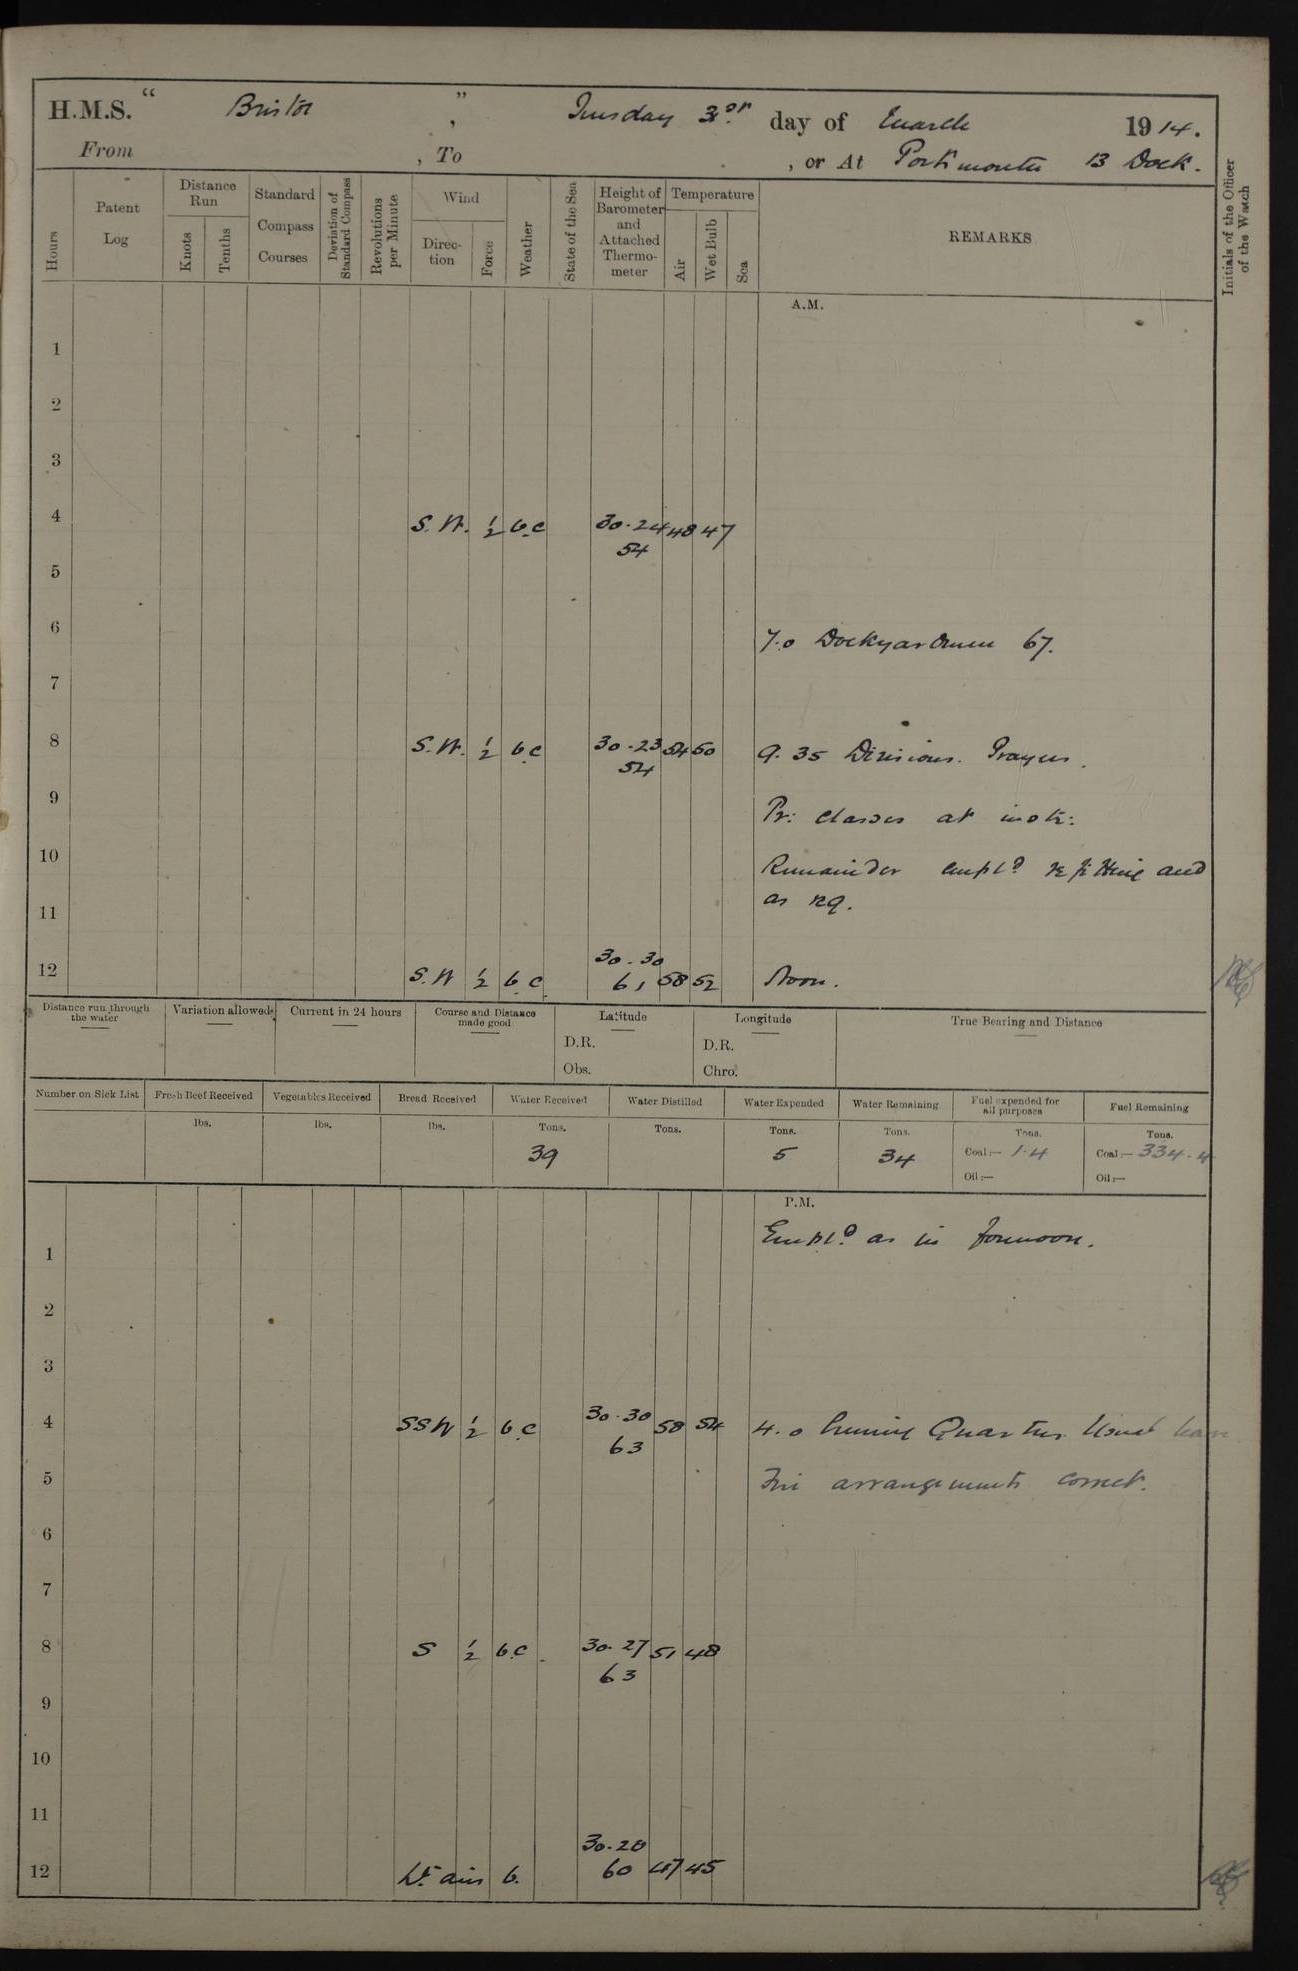 H.M.S. “ Bristol ” , Tuesday 3rd day of March 1914.
From , To , or At Portsmouth 13 Dock.
Hours
Patent Log
Distance Run
Knots
Tenths
Standard Compass Courses
Deviation of Standard Compass
Revolutions per Minute
Wind
Direction
Force
Weather
State of the Sea
Height of Barometer and Attached Thermometer
Temperature
Air
Wet Bulb
Sea
REMARKS
Initials of the Officer of the Watch
A.M.
1
2
3
4 S.W. 1/2 b.c 30.24 48 47
54
5
6
7.0 Dockyardmen 67.
7
8 S.W. 1/2 b.c 30.23 54 50 9.35 Divisions. Prayers.
54
9 Pr: classes at instr:
10 Remainder empld refitting and
11 as req.
30.30
12 S.W 1/2 b.c 61 58 52 Noon.
Distance run through the water
Variation allowed
Current in 24 hours
Course and Distance made good
Latitude
D.R.
Obs.
Longitude
D.R.
Chro.
True Bearing and Distance
Number on Sick List Fresh Beef Received Vegetables Received Bread Received Water Received Water Distilled Water Expended Water Remaining Fuel expended for all purposes Fuel Remaining
lbs. lbs. lbs. Tons. Tons. Tons. Tons. Tons. Tons.
39 5 34 Coal:— 1.4 Coal:— 334.4
Oil:— Oil:—
P.M.
Empld as in forenoon.
1
2
3
4 SSW 1/2 b.c 30.30 58 54 4.0 Evening Quarters Usual leave
63
5 Fire arrangements correct.
6
7
8 S 1/2 b.c. 30.27 51 48
63
9
10
11
30.28
12 Lt airs b. 60 47 45